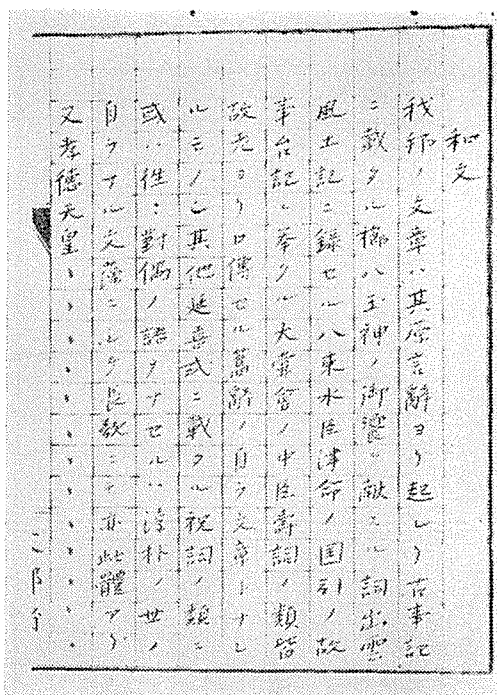 和文
我邦ノ文章ハ其原言辭ヨリ起レリ古事記
ニ載タル櫛八玉神ノ御饗ヲ獻ズル詞出雲
風土記ニ録セル八束水臣津命ノ国引ノ故
事台記ニ挙タル大嘗會ノ中臣壽詞ノ類皆
故老ヨリ口傳セル舊辭ノ自ラ文章トナレ
ルモノニ其他延喜式ニ載タル祝詞ノ類ニ
或ハ往々對偶ノ語ヲナセルハ淳朴ノ世ノ
自ラナル文藻ニ 長歌ニモ亦此體アリ
又孝德天皇、、、、、、、、、、、、